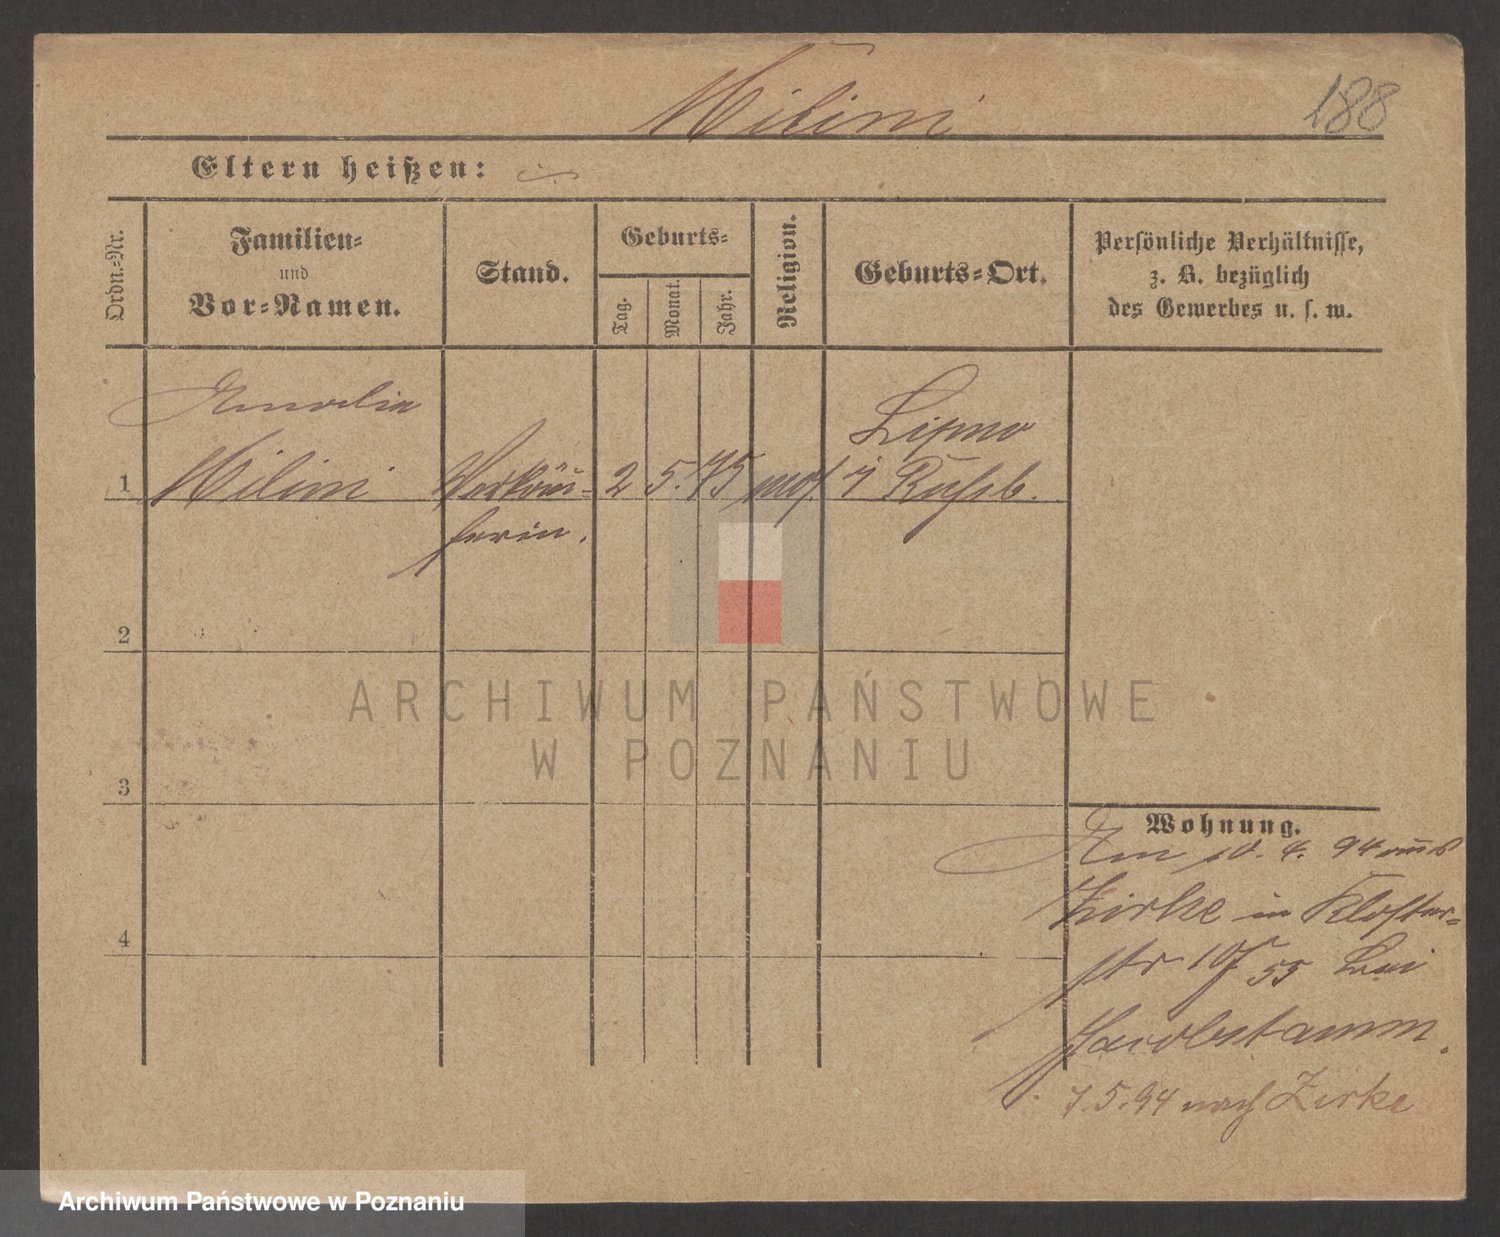 Milini
188
Eltern heißen:
Ordn.-Nr.
Familien-
und
Vor-Namen.
Stand.
Geburts-
Tag.
Monat.
Jahr.
Religion.
Geburts-Ort.
Persönliche Verhältnisse,
z. B. bezüglich
des Gewerbes u. s. w.
Amalia
Lipno
1 Milini Verkäu- 2 5. 75 mos i Rußl.
ferin.
2
3
4
Wohnung.
Am 10. 4. 94 aus
Zirke in Kloster-
str 10/ 55 bei
7.5.94 nach Zirke
ARCHIWUM PAŃSTWOWE
W POZNANIU
Archiwum Państwowe w Poznaniu